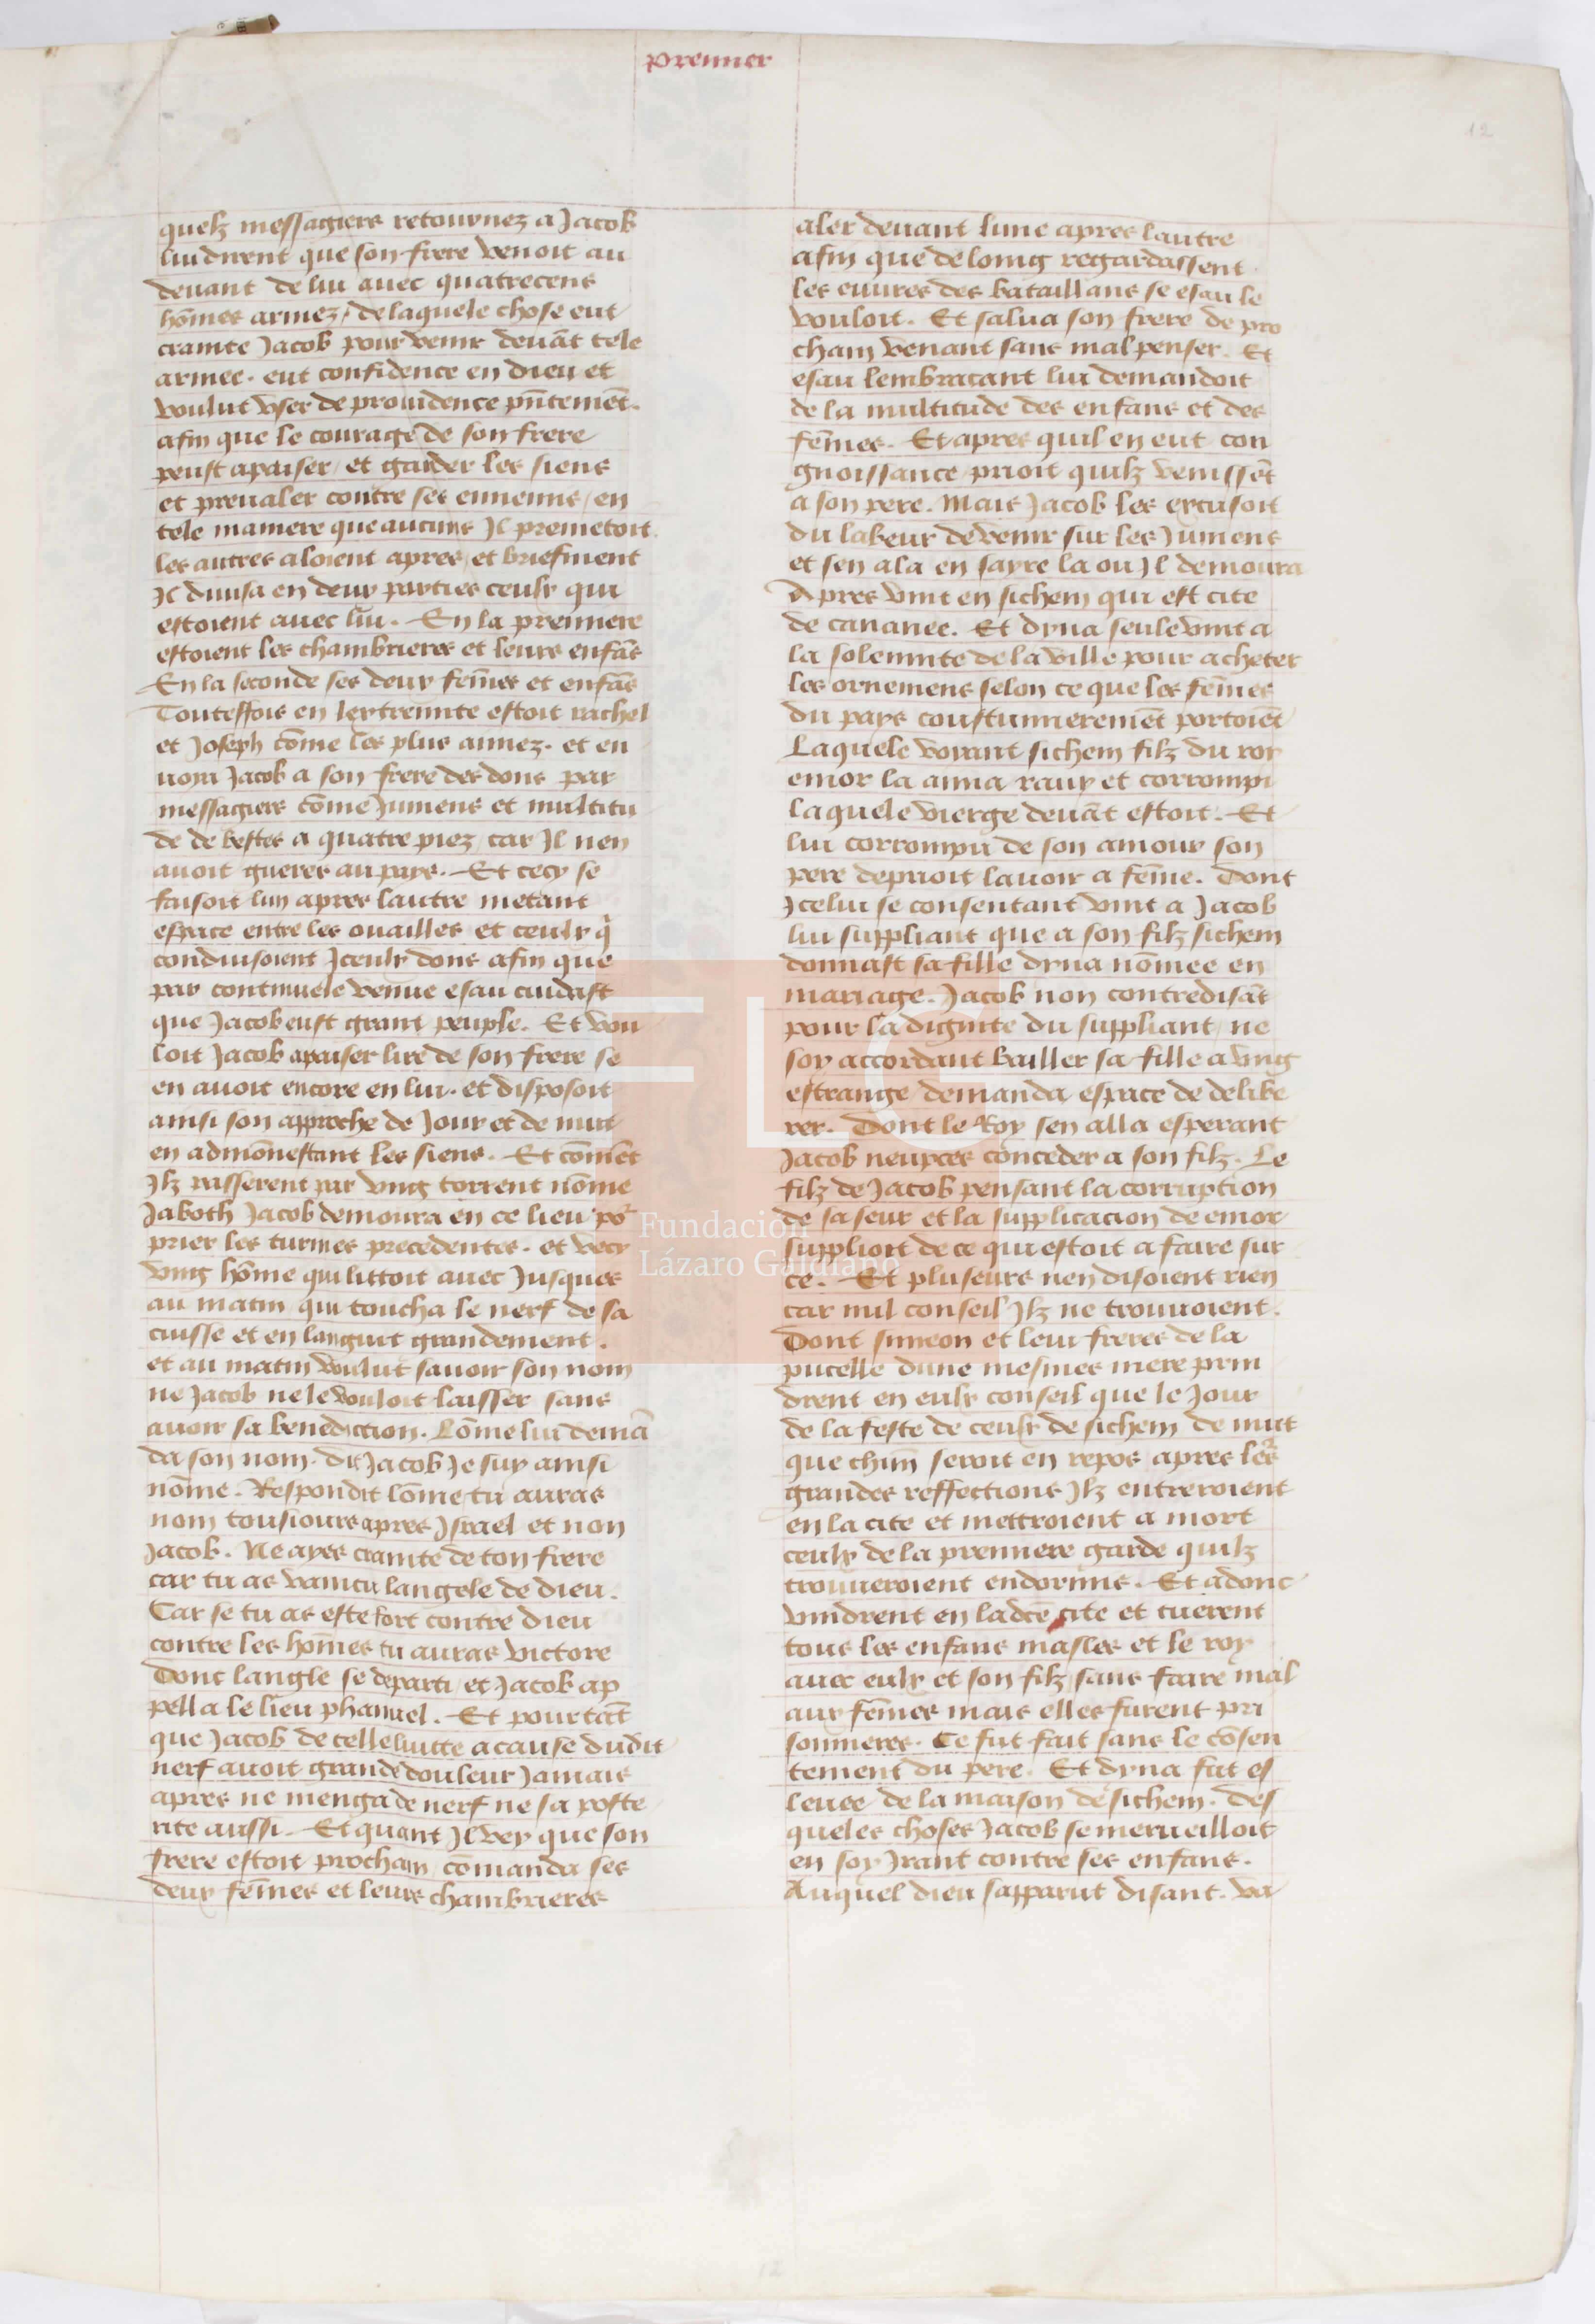 premier
12
quelz messagiers retournez a Jacob
lui dirent que son frere venoit au
devant de lui avec quatrecens
hōmes armez / de laquele chose eut
crainte Jacob pour venir devāt tele
armee. eut confidence en dieu et
voulut vser de providence pn̄tement.
afin que le courage de son frere
peust apaiser / et garder les siens
et prevaler contre ses ennemis / en
tele maniere que aucuns Jl premetoit
les autres aloient apres / et briefment
Jl divisa en deux parties ceulx qui
estoient avec lui. En la premiere
estoient les chambrieres et leurs enfās
En la seconde ses deux fem̄es et enfās
Touteffois en lextremite estoit rachel
et Joseph cōme les plus aimez. et en
voia Jacob a son frere des dons par
messagiers cōme Jumens et multitu
de de bestes a quatre piez / car Jl nen
avoit gueres au pays. Et cecy se
faisoit lun apres lautre metant
espace entre les ouailles et ceulx q̄
conduisoient Jceulx dons afin que
par continuele venue esau cuidast
que Jacob eust grant peuple. Et vou
loit Jacob apaiser lire de son frere se
en avoit encore en lui. et disposoit
ainsi son approche de Jour et de nuit
en admōnestant les siens. Et cōmēt
Jlz passerent par vng torrent nōme
Jaboth Jacob demoura en ce lieu po^r
prier les turmes precedentes. et vecy
vng hōme qui littoit avec Jusques
au matin / qui toucha le nerf de sa
cuisse et en languit grandement.
et au matin voulut savoir son nom
ne Jacob ne le vouloit laisser sans
avoir sa benediction. Lōme lui demā
da son nom. dit Jacob Je suy ainsi
nōme. Respondit lōme tu auras
nom tousiours apres Jsrael et non
Jacob. Ne ayes crainte de ton frere
car tu as vaincu langele de dieu.
Car se tu as este fort contre dieu
contre les hōmes tu auras victore
Dont langle se departi / et Jacob ap
pella le lieu phanuel. Et pour tāt
que Jacob de celle luitte a cause dudit
nerf avoit grande douleur Jamais
apres ne menga de nerf ne sa poste
rite aussi. Et quant Jl vey que son
frere estoit prochain / cōmanda ses
deux fēmes et leurs chambrieres
aler devant lune apres lautre
afin que de loing regardassent
les euvres des bataillans se esau le
vouloit. Et salua son frere de pro
chain venant sans mal penser. Et
esau lembracant lui demandoit
de la multitude des enfans et des
fēmes. Et apres quil en eut con
gnoissance / prioit quilz venissēt
a son pere. Mais Jacob les excusoit
du labeur de venir sur les Jumens
et sen ala en sayre la ou Jl demoura
Apres vint en sichem qui est cite
de cananee. Et dyna seule vint a
la solennite de la ville pour acheter
les ornemens selon ce que les fēmes
du pays coustumieremēt portoiēt
Laquele voyant sichem filz du roy
emor la aima ravy et corrompi
laquele vierge devāt estoit. Et
lui corrompu de son amour son
pere deprioit lavoir a fēme. Dont
Jcelui se consentant vint a Jacob
lui suppliant que a son filz sichem
donnast sa fille dyna nōmee en
mariage. Jacob non contredisāt
pour la dignite du suppliant / ne
soy accordant bailler sa fille a vng
estrange / demanda espace de delibe
rer. Dont le Roy sen alla esperant
Jacob neupces conceder a son filz. Le
filz de Jacob pensant la corruption
de sa seur et la supplicacion de emor
supplioit de ce qui estoit a faire sur
ce. Et pluseurs nen disoient rien
car nul conseil Jlz ne trouvoient.
Dont simeon et levi freres de la
pucelle dune mesmes mere prin
drent en eulx conseil que le Jour
de la feste de ceulx de sichem de nuit
que chūn seroit en repos apres le^rs
grandes reffections Jlz entreroient
en la cite et mettroient a mort
ceulx de la premiere garde quilz
trouveroient endormis. Et adonc
vindrent en ladcē cite et tuerent
tous les enfans masles et le roy
avec eulx et son filz / sans faire mal
aux fēmes mais elles furent pri
sonnieres. Ce fut fait sans le cōsen
tement du pere. Et dyna fut es
levee de la maison de sichem. Des
queles choses Jacob se merveilloit
en soy Jrant contre ses enfans.
Auquel dieu sapparut disant. va
FLG
Fundación
Lázaro Galdiano
12